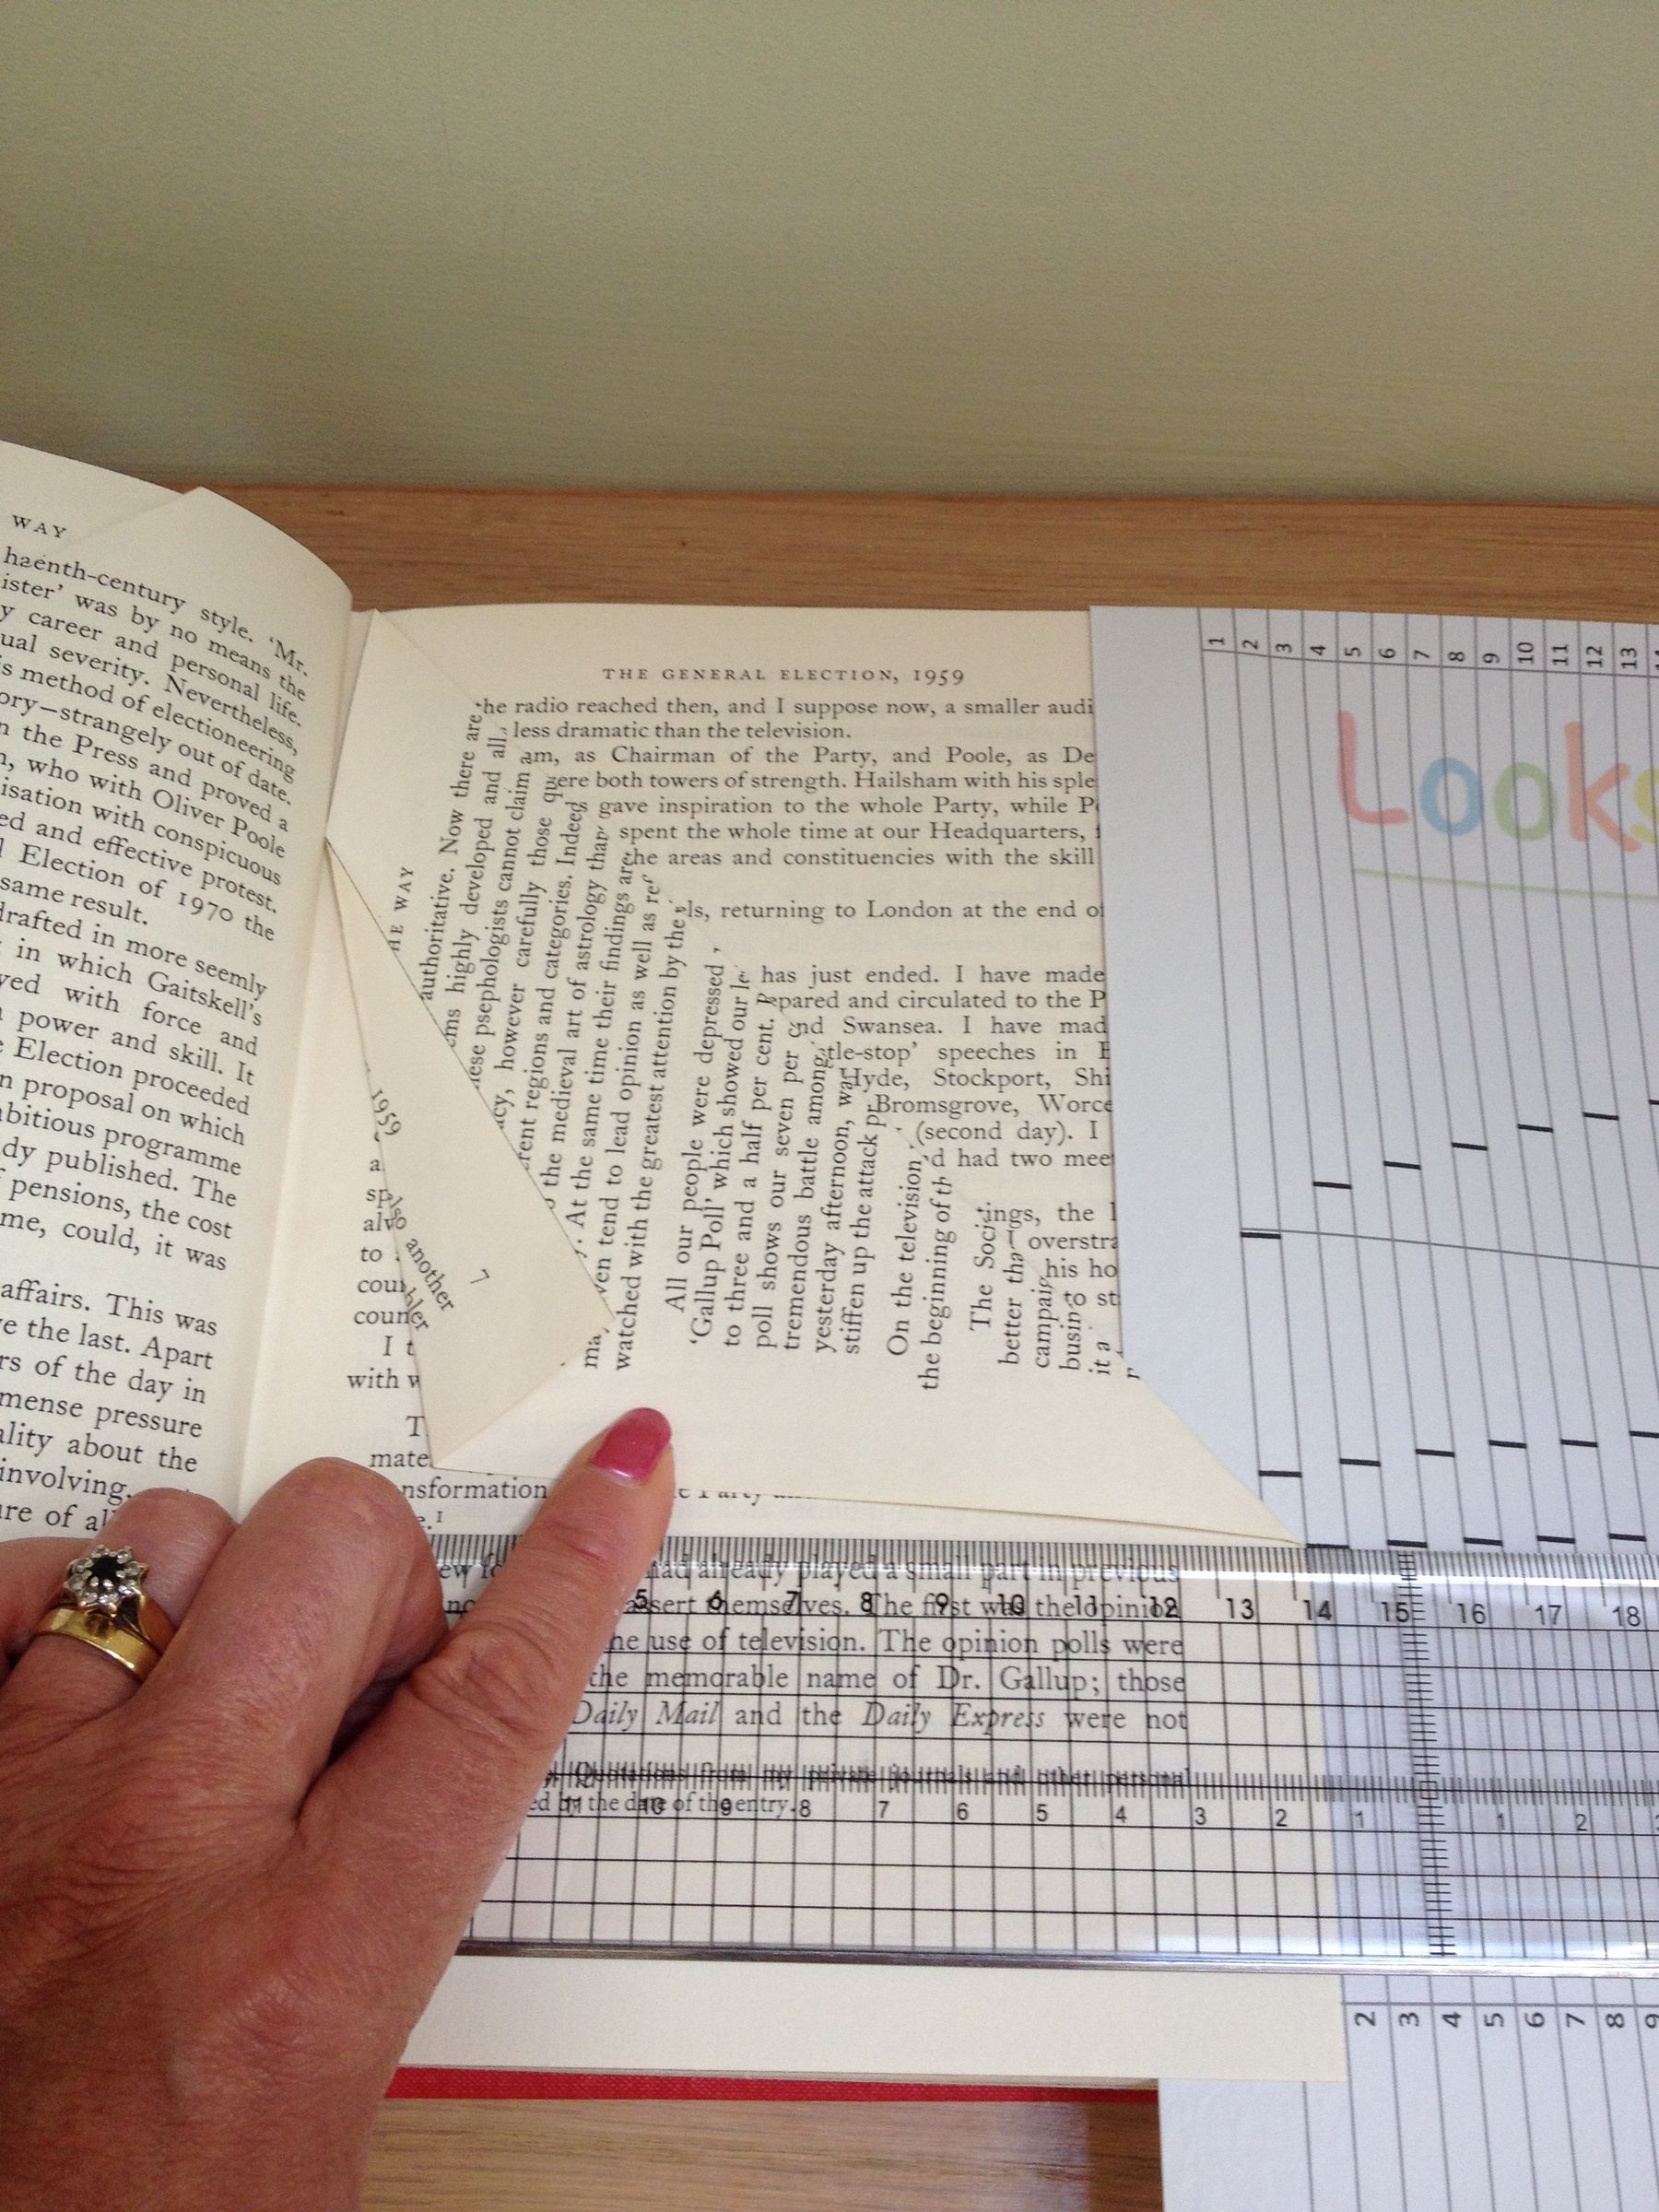 WAY
haenth-century style. 'Mr.
ister' was by no means the
y career and personal life.
ual severity. Nevertheless,
s method of electioneering
ory—strangely out of date.
n the Press and proved a
, who with Oliver Poole
isation with conspicuous
ed and effective protest.
l Election of 1970 the
same result.
drafted in more seemly
in which Gaitskell's
yed with force and
power and skill. It
Election proceeded
n proposal on which
bitious programme
dy published. The
pensions, the cost
me, could, it was
affairs. This was
e the last. Apart
rs of the day in
mense pressure
ality about the
involving.
re of al
THE GENERAL ELECTION, 1959
he radio reached then, and I suppose now, a smaller audi
less dramatic than the television.
am, as Chairman of the Party, and Poole, as De
were both towers of strength. Hailsham with his sple
gave inspiration to the whole Party, while P
spent the whole time at our Headquarters,
the areas and constituencies with the skill
ls, returning to London at the end of
has just ended. I have made
epared and circulated to the P
and Swansea. I have mad
tle-stop' speeches in
Hyde, Stockport, Shi
Bromsgrove, Worce
(second day). I
d had two mee
tings, the
overstra
his ho
to st
HE WAY
authoritative. Now there are
ems highly developed and all
hese psephologists cannot claim
cy, however carefully those qu
erent regions and categories. Indeed
the medieval art of astrology than
. At the same time their findings are
even tend to lead opinion as well as ref
watched with the greatest attention by the
All our people were depressed
'Gallup Poll' which showed our le
to three and a half per cent.
poll shows our seven per
tremendous battle among
yesterday afternoon, wa
stiffen up the attack
On the television
the beginning of th
The Soci
better tha
campaig
busin
it a
1959
also another
7
a
sp
alv
to
coun
coun
I t
with w
T
mate
nsformation
e.¹
had already played a small part in previous
assert themselves. The first was the opinion
he use of television. The opinion polls were
the memorable name of Dr. Gallup; those
Daily Mail and the Daily Express were not
Quotations from my private journals and other personal
ed by the date of the entry.
5 6 7 8 9 10 11 12 13 14 15 16 17 18
11 10 9 8 7 6 5 4 3 2 1 1 2
1 2 3 4 5 6 7 8 9 10 11 12 13
Looks
2 3 4 5 6 7 8 9